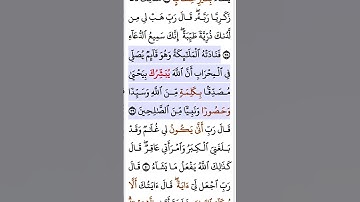 زَكَرِيَّا رَبَّهُۥ ۖ قَالَ رَبِّ هَبْ لِى مِن
لَّدُنكَ ذُرِّيَّةً طَيِّبَةً ۖ إِنَّكَ سَمِيعُ ٱلدُّعَآءِ
۝ فَنَادَتْهُ ٱلْمَلَٰٓئِكَةُ وَهُوَ قَآئِمٌ يُصَلِّى
فِى ٱلْمِحْرَابِ أَنَّ ٱللَّهَ يُبَشِّرُكَ بِيَحْيَىٰ
مُصَدِّقًۢا بِكَلِمَةٍ مِّنَ ٱللَّهِ وَسَيِّدًا
وَحَصُورًا وَنَبِيًّا مِّنَ ٱلصَّٰلِحِينَ ۝
قَالَ رَبِّ أَنَّىٰ يَكُونُ لِى غُلَٰمٌ وَقَدْ
بَلَغَنِىَ ٱلْكِبَرُ وَٱمْرَأَتِى عَاقِرٌ ۖ قَالَ
كَذَٰلِكَ ٱللَّهُ يَفْعَلُ مَا يَشَآءُ ۝ قَالَ
رَبِّ ٱجْعَل لِّىٓ ءَايَةً ۖ قَالَ ءَايَتُكَ أَلَّا